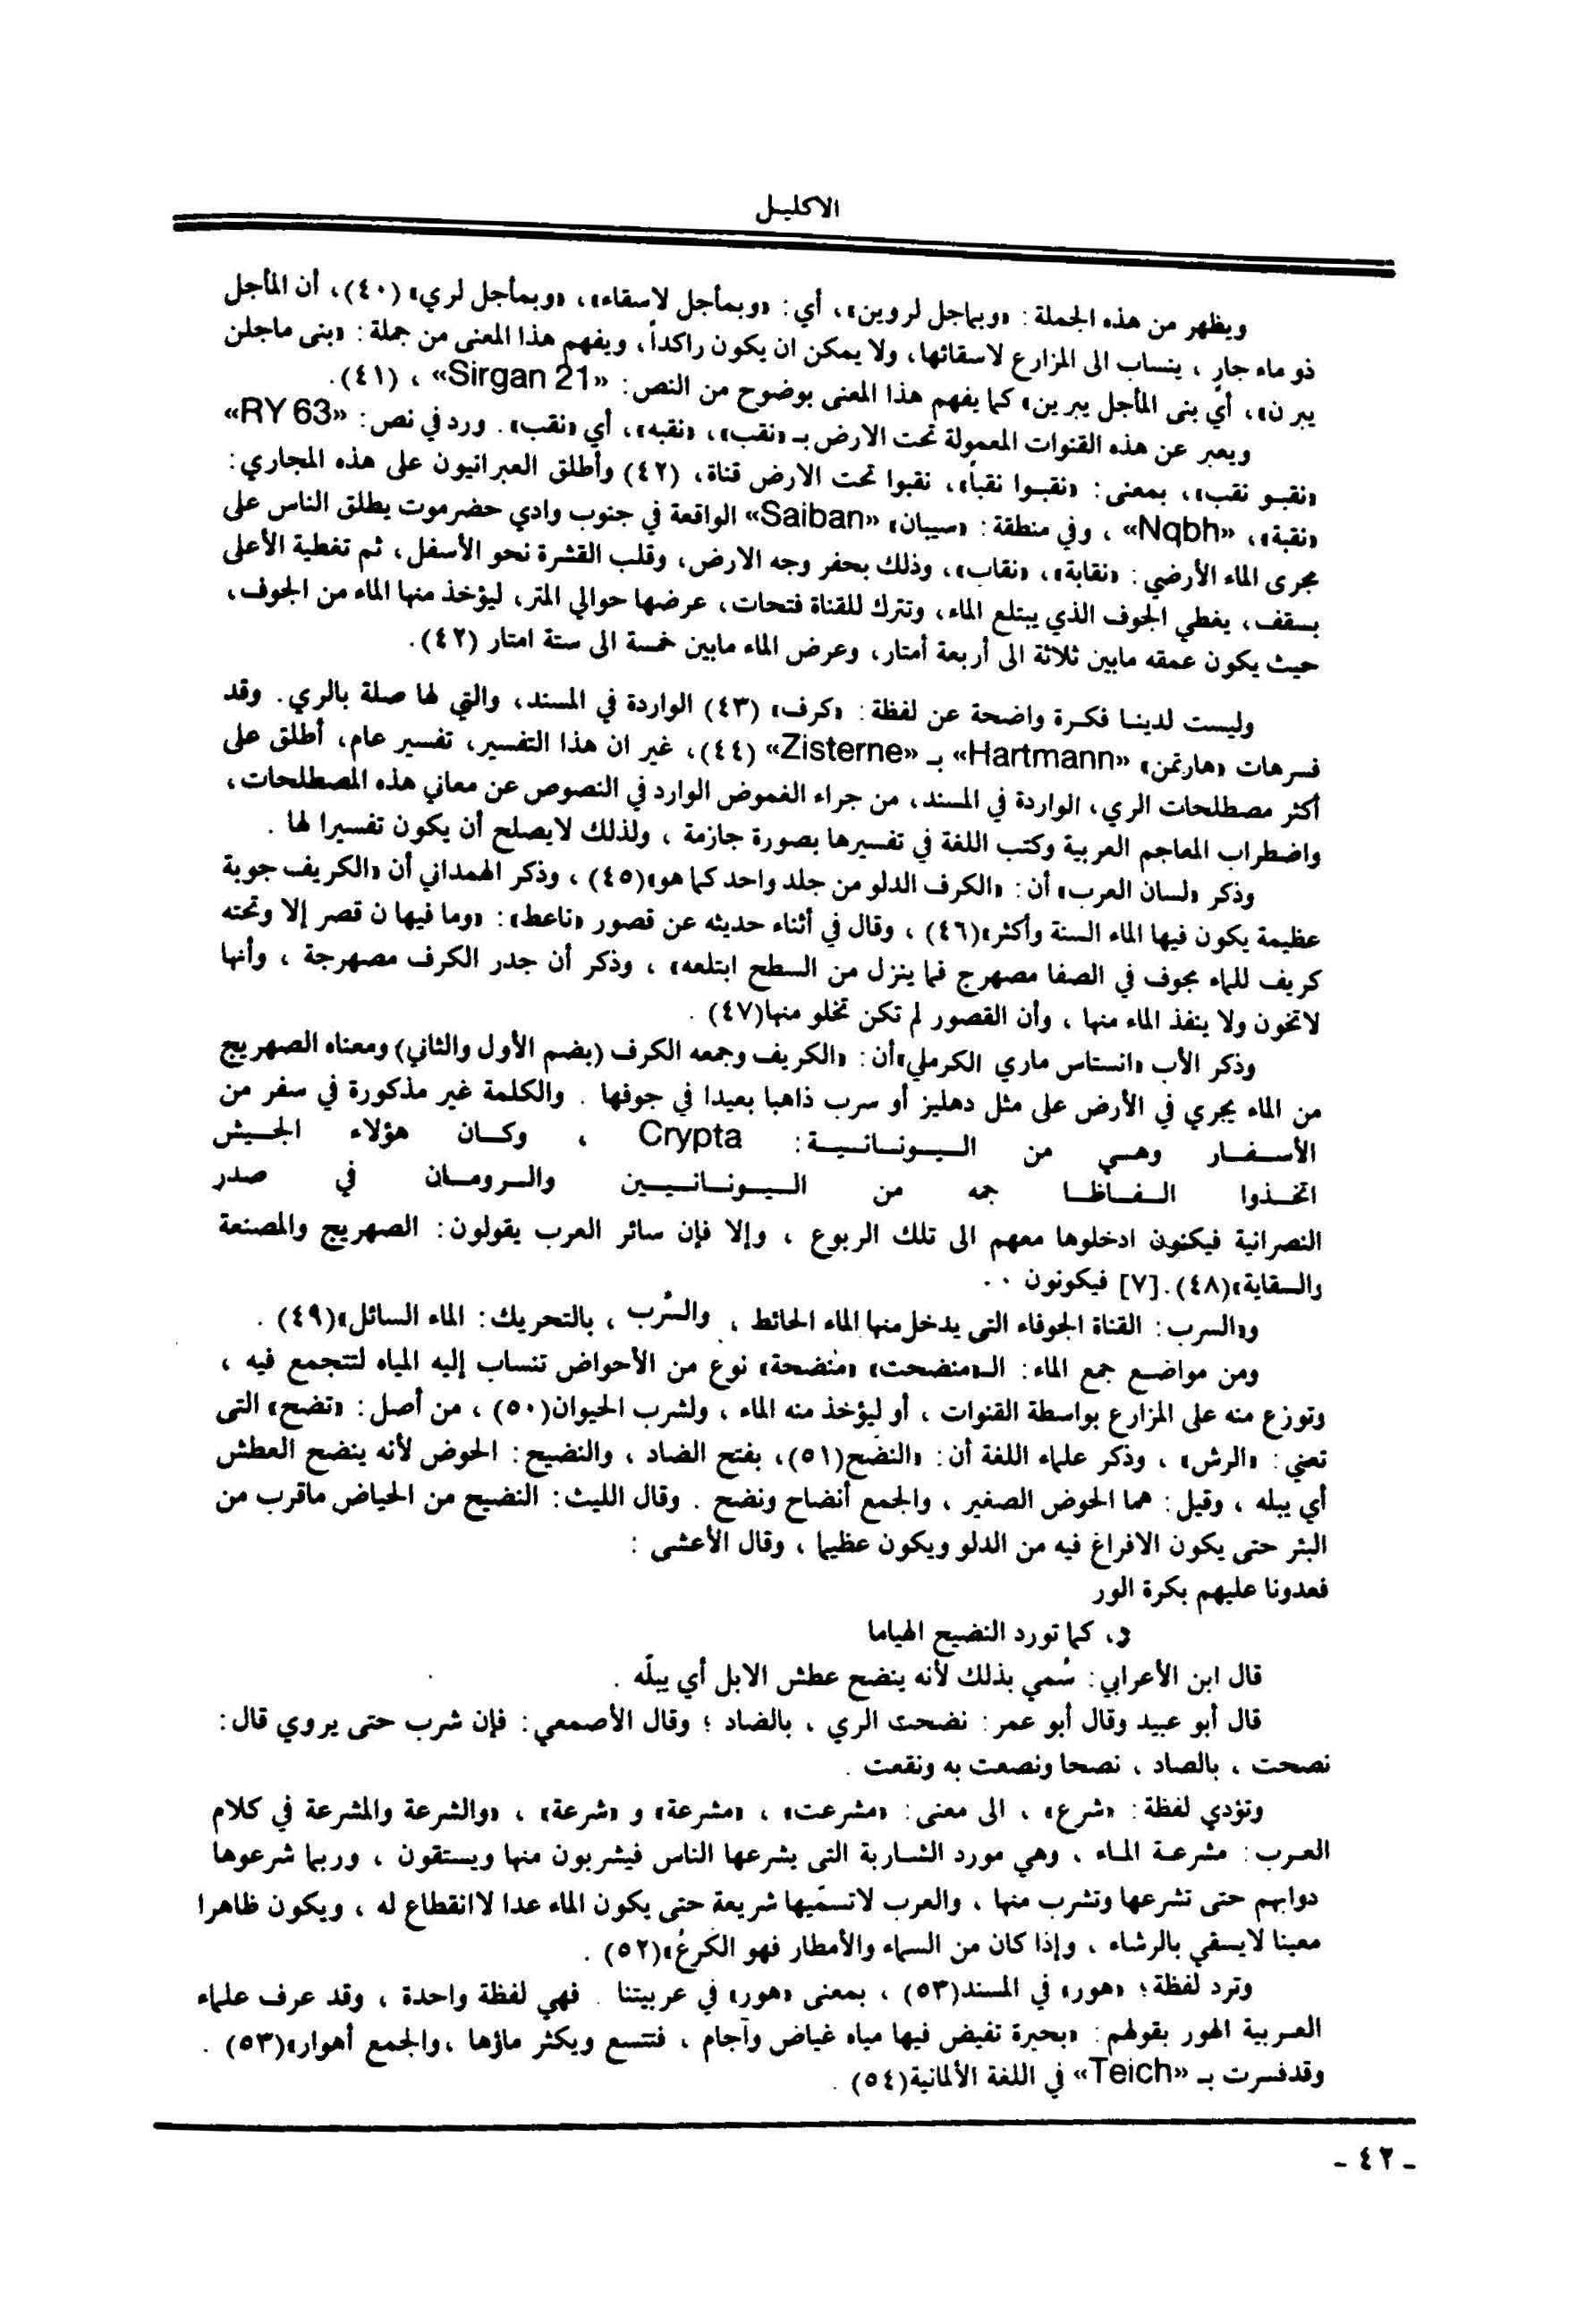 الاكليل
ويظهر من هذه الجملة : «وبماجل لروين»، أي: «وبمأجل لاسقاء»، «وبمأجل لري» (٤٠)، أن المأجل
ذو ماء جارٍ ، ينساب الى المزارع لاسقائها، ولا يمكن ان يكون راكداً، ويفهم هذا المعنى من جملة : «بنى ماجلن
يبرن»، أي بنى المأجل يبرين» كما يفهم هذا المعنى بوضوح من النص: «Sirgan 21» ، (٤١).
ويعبر عن هذه القنوات المعمولة تحت الارض بـ «نقب»، «نقبه»، أي «نقب». ورد في نص: «RY 63»
«نقبـو نقب»، بمعنى: «نقبـوا نقباً»، نقبوا تحت الارض قناة، (٤٢) وأطلق العبرانيون على هذه المجاري:
«نقبة»، «Nqbh» ، وفي منطقة : «سيبان» «Saiban» الواقعة في جنوب وادي حضرموت يطلق الناس على
مجرى الماء الأرضي: «نقابة»، «نقاب»، وذلك بحفر وجه الارض، وقلب القشرة نحو الأسفل، ثم تغطية الأعلى
بسقف، يغطي الجوف الذي يبتلع الماء، وتترك للقناة فتحات، عرضها حوالي المتر، ليؤخذ منها الماء من الجوف،
حيث يكون عمقه مابين ثلاثة الى أربعة أمتار، وعرض الماء مابين خمسة الى ستة امتار (٤٢).
وليست لدينـا فكـرة واضحة عن لفظة: «كرف» (٤٣) الواردة في المسند، والتي لها صلة بالري. وقد
فسرهات «هارتمن» «Hartmann» بـ «Zisterne» (٤٤)، غير ان هذا التفسير، تفسير عام، أطلق على
أكثر مصطلحات الري، الواردة في المسند، من جراء الغموض الوارد في النصوص عن معاني هذه المصطلحات،
واضطراب المعاجم العربية وكتب اللغة في تفسيرها بصورة جازمة ، ولذلك لايصلح أن يكون تفسيرا لها .
وذكر «لسان العرب» أن: «الكرف الدلو من جلد واحد كما هو»(٤٥) ، وذكر الهمداني أن «الكريف جوبة
عظيمة يكون فيها الماء السنة وأكثر»(٤٦) ، وقال في أثناء حديثه عن قصور «ناعط»: «وما فيها ن قصر إلا وتحته
كريف للماء مجوف في الصفا مصهرج فما ينزل من السطح ابتلعه» ، وذكر أن جدر الكرف مصهرجة ، وأنها
لاتخون ولا ينفذ الماء منها ، وأن القصور لم تكن تخلو منها(٤٧) .
وذكر الأب «انستاس ماري الكرملي»أن: «الكريف وجمعه الكرف (بضم الأول والثاني) ومعناه الصهريج
من الماء يجري في الأرض على مثل دهليز أو سرب ذاهبا بعيدا في جوفها . والكلمة غير مذكورة في سفر من
الأسـفـار وهـي من الـيـونـانـيـة: Crypta ، وكـان هؤلاء الجـيش
اتخـذوا الـفـاظـا جمه من الـيـونـانـيـين والـرومـان في صدر
النصرانية فيكنون ادخلوها معهم الى تلك الربوع ، وإلا فإن سائر العرب يقولون: الصهريج والمصنعة
والسقاية»(٤٨).[٧] فيكونون ..
و«السرب: القناة الجوفاء التى يدخل منها الماء الحائط ، والسُرب ، بالتحريك: الماء السائل»(٤٩) .
ومن مواضـع جمع الماء: الـ«منضحت» «منضحة» نوع من الأحواض تنساب إليه المياه لتتجمع فيه ،
وتوزع منه على المزارع بواسطة القنوات ، أو ليؤخذ منه الماء ، ولشرب الحيوان(٥٠) ، من أصل: «تضح» التى
تعني: «الرش» ، وذكر علماء اللغة أن: «النضَح(٥١)، بفتح الضاد ، والنضيح: الحوض لأنه ينضح العطش
أي يبله ، وقيل: هما الحوض الصغير ، والجمع أنضاح ونضح . وقال الليث: النضيح من الحياض ماقرب من
البئر حتى يكون الافراغ فيه من الدلو ويكون عظيما ، وقال الأعشى :
فعدونا عليهم بكرة الور
د، كما تورد النضيح الهياما
قال ابن الأعرابي: سُمي بذلك لأنه ينضح عطش الابل أي يبلّه .
قال أبو عبيد وقال أبو عمر: نضحت الري ، بالضاد ؛ وقال الأصمعي: فإن شرب حتى يروي قال:
نصحت ، بالصاد ، نصحا ونصعت به ونقعت .
وتؤدي لفظة: «شرع» ، الى معنى: «مشرعت» ، «مشرعة» و «شرعة» ، «والشرعة والمشرعة في كلام
العـرب: مشرعـة المـاء ، وهي مورد الشـاربة التى يشرعها الناس فيشربون منها ويستقون ، وربما شرعوها
دوابهم حتى تشرعها وتشرب منها ، والعرب لاتسمّيها شريعة حتى يكون الماء عدا لاانقطاع له ، ويكون ظاهرا
معينا لايسقي بالرشاء ، وإذا كان من السماء والأمطار فهو الكَرعُ»(٥٢) .
وترد لفظة؛ «هور» في المسند(٥٣) ، بمعنى «هور» في عربيتنا . فهي لفظة واحدة ، وقد عرف علماء
العـربية الهور بقولهم: «بحيرة تفيض فيها مياه غياض وآجام ، فتتسع ويكثر ماؤها ،والجمع أهوار»(٥٣) .
وقدفسرت بـ «Teich» في اللغة الألمانية(٥٤) .
- ٤٢ -